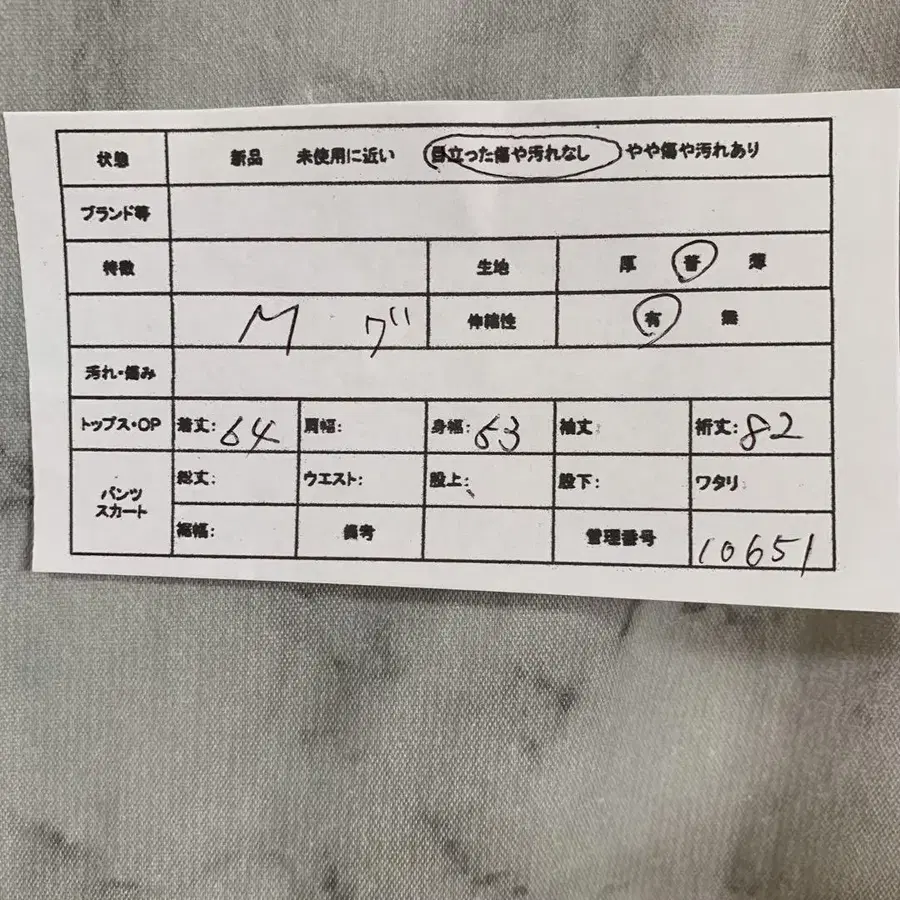 状態 新品 未使用に近い 目立った傷や汚れなし やや傷や汚れあり
ブランド等
特徴 生地 厚 普 薄
M グ 伸縮性 有 無
汚れ・傷み
トップス・OP 着丈: 64 肩幅: 身幅: 63 袖丈: 裄丈: 82
パンツ スカート 総丈: ウエスト: 股上: 股下: ワタリ:
裾幅: 備考 管理番号 10651